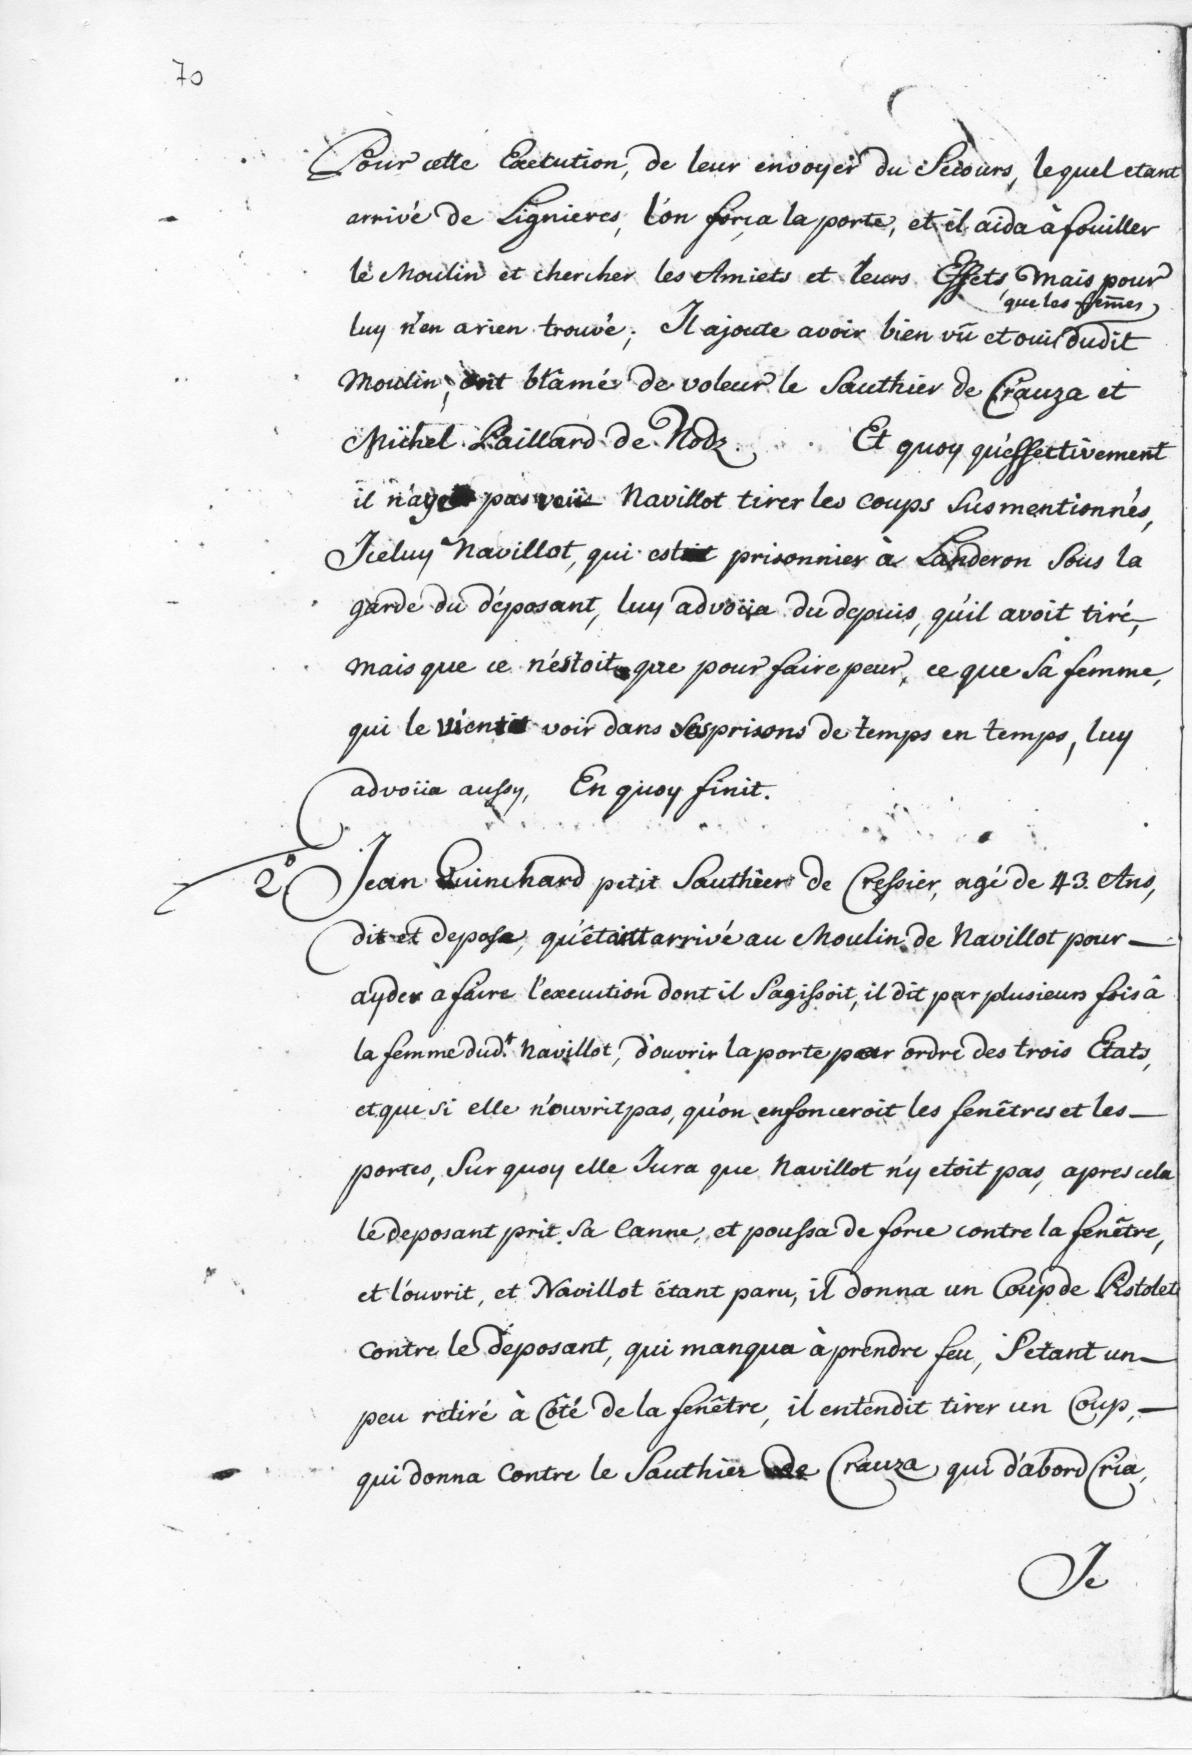 70
Pour cette Execution, de leur envoyer du Secours, lequel etant
arrivé de Lignieres, l'on força la porte, et il aida à fouiller
le Moulin et chercher les Amiets et leurs Effets, mais pour
que les fem̄es
luy n'en a rien trouvé; Il ajoute avoir bien vû et oui dudit
Moulin, ont blâmé de voleur le Sauthier de Crauza et
Michel Paillard de Nodz. Et quoy qu'effectivement
il n'aye pas veü Navillot tirer les coups susmentionnés,
Iceluy Navillot, qui est prisonnier à Landeron sous la
garde du déposant, luy advoüa du depuis, qu'il avoit tiré,
mais que ce n'éstoit que pour faire peur, ce que sa femme,
qui le vient voir dans ses prisons de temps en temps, luy
advoüa aussy, En quoy finit.
2° Jean Quinchard petit Sauthier de Cressier, agé de 43. Ans,
dit et depose, qu'étant arrivé au Moulin de Navillot pour
ayder à faire l'execution dont il s'agissoit, il dit par plusieurs fois à
la femme dud.t Navillot, d'ouvrir la porte par ordre des trois Etats,
et que si elle n'ouvrit pas, qu'on enfonceroit les fenêtres et les
portes, Sur quoy elle Jura que Navillot n'y etoit pas, apres cela
le deposant prit sa Canne, et poussa de force contre la fenêtre,
et l'ouvrit, et Navillot étant paru, il donna un Coup de Pistolet
contre le déposant, qui manqua à prendre feu, S'etant un
peu retiré à Côté de la fenêtre, il entendit tirer un Coup,
qui donna Contre le Sauthier de Crauza, qui d'abord Cria,
Je